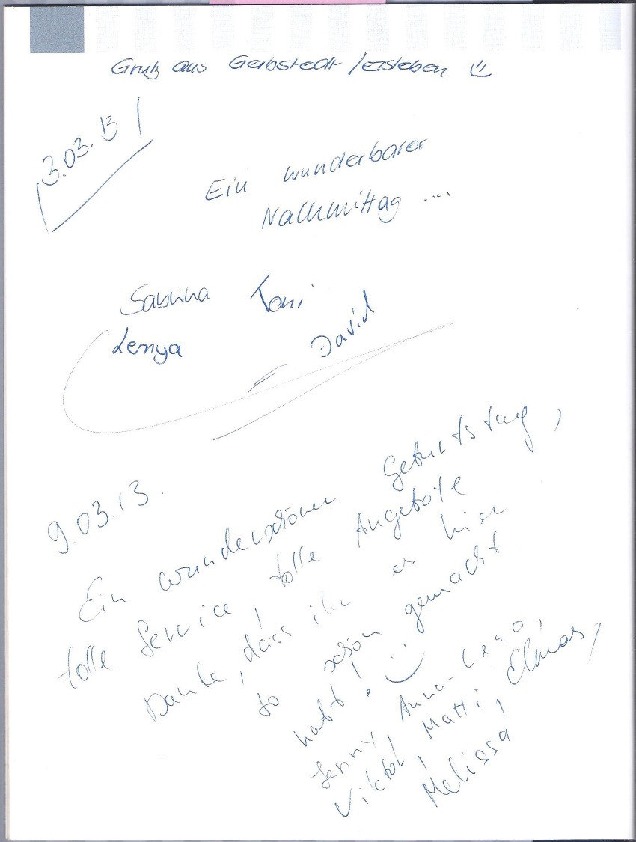 Gruß aus Gerbstedt / ersleben
3.03.13
Ein wunderbarer
Nachmittag ...
Sabrina Toni
Lenya David
9.03.13.
Ein wunderschöner Geburtstag,
tolle Service, tolle Angebote
Danke, dass ihr es
so schön gemacht
habt!
Jenny, Anna-Lena,
Viktor, Matti, Elmas,
Melissa